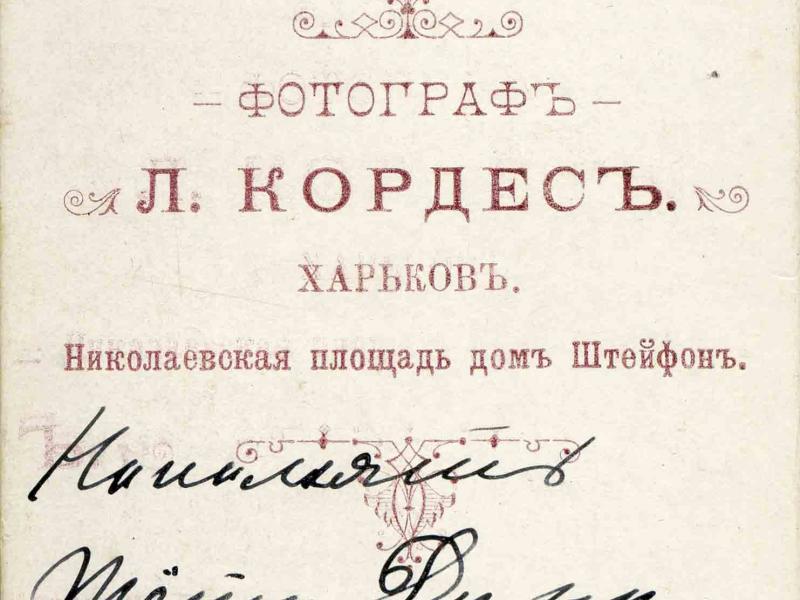 ФОТОГРАФЪ
Л. КОРДЕСЪ.
ХАРЬКОВЪ.
Николаевская площадь домъ Штейфонъ.
На память